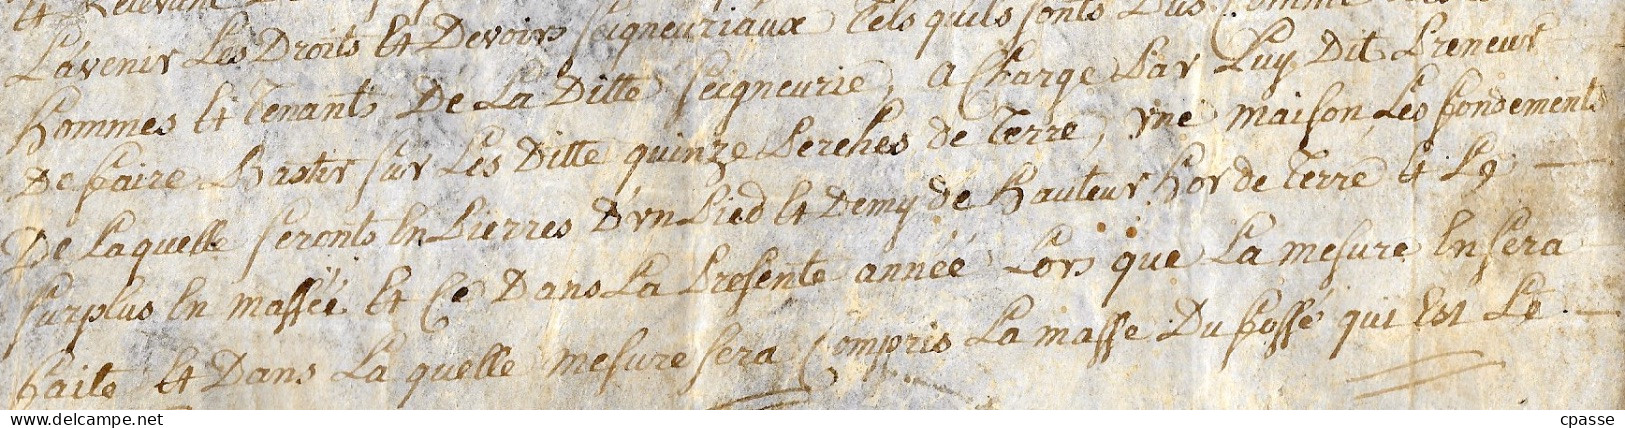 et Relevant
Lavenir Les Droits Et Devoirs seigneuriaux Tels quils sonts Dus Comme
hommes Et Tenants De La Ditte seigneurie, a Charge Par Luy Dit Preneur
De faire Bastir sur Les Ditte quinze Perches de Terre, vne maison, Les fondements
De Laquelle seronts En Pierres D'vn Pied Et Demy de hauteur hor de Terre Et Le
surplus En massée Et Ce Dans La Presente année Lors que La mesure En sera
faite Et Dans La quelle mesure sera Compris La masse Du fossé qui Est Le
cpasse